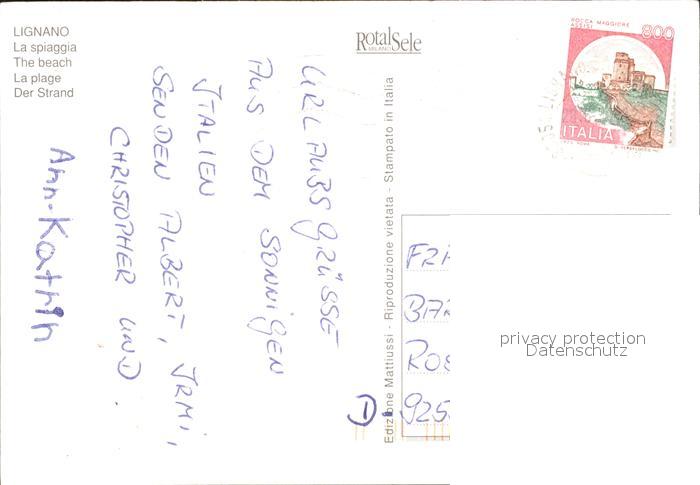 LIGNANO
La spiaggia
The beach
La plage
Der Strand
RotalSele
MILANO
ROCCA MAGGIORE
ASSISI
800
ITALIA
URLAUBSGRÜSSE
AUS DEM SONNIGEN
ITALIEN
SENDEN ALBERT, IRMI,
CHRISTOPHER UND
Ann-Katrin
Edizione Mattiussi - Riproduzione vietata - Stampato in Italia
FR
BA
RO
D-925
privacy protection
Datenschutz